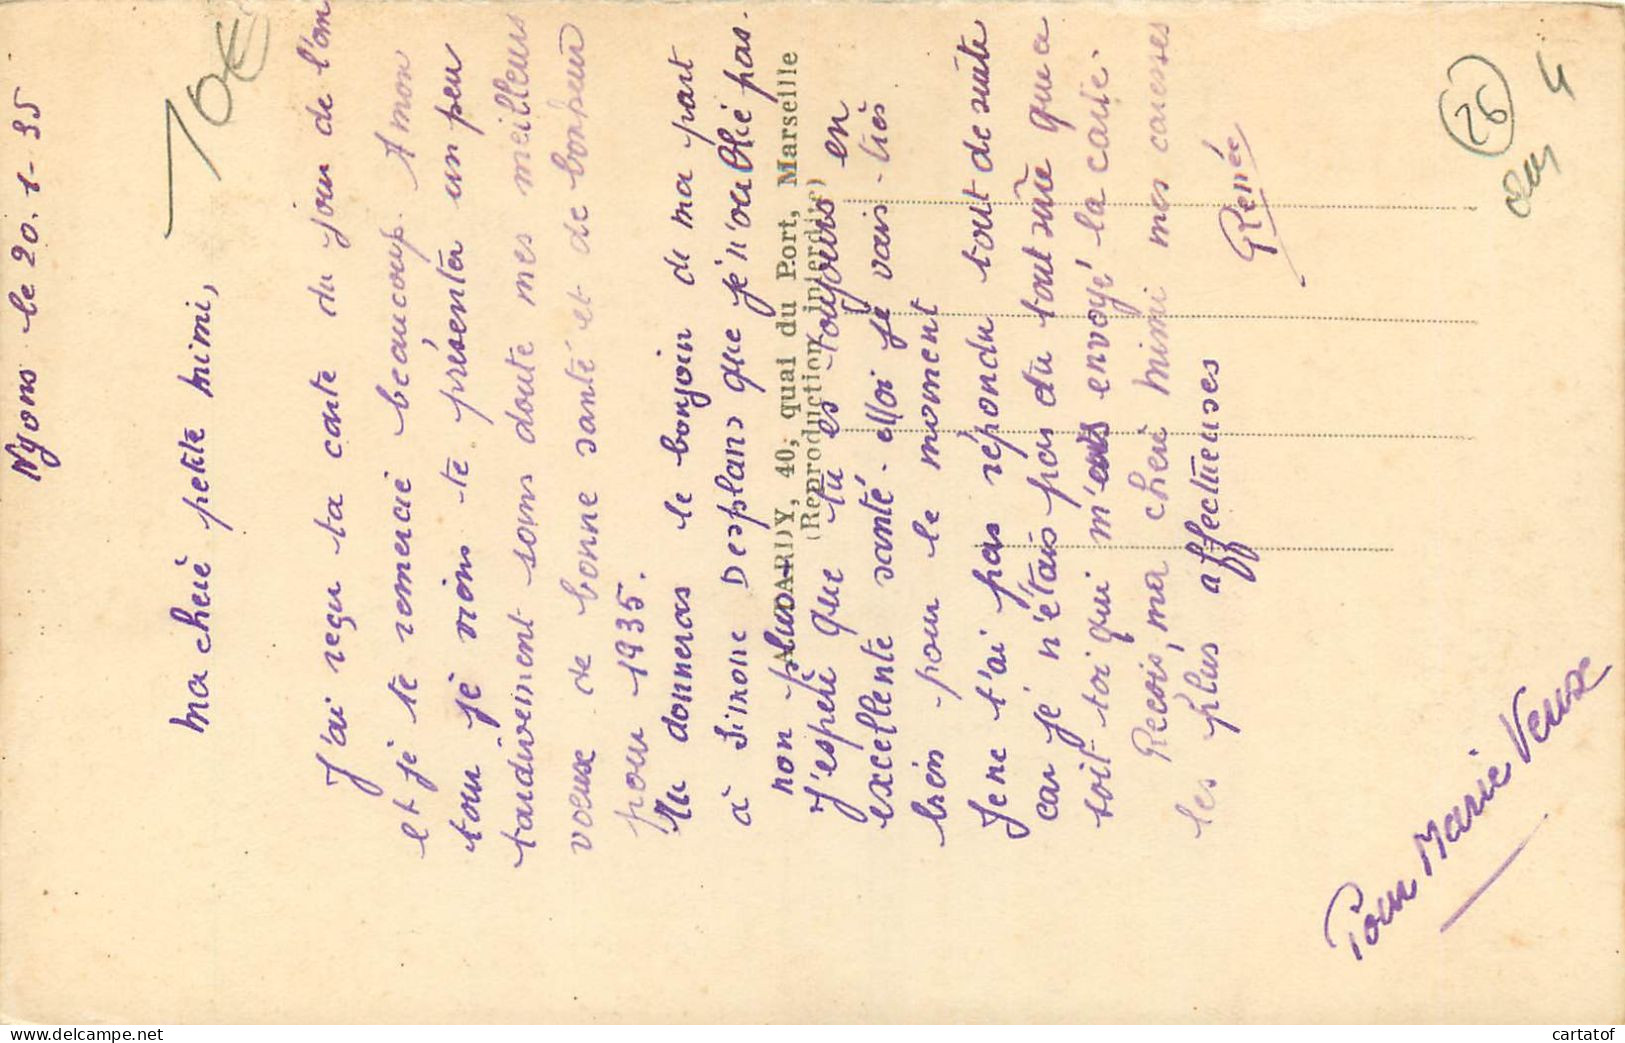 Nyons le 20-1-35
10€
ma cheré petite mimi,
J'ai reçu ta carte du jour de l'an
et je te remercie beaucoup. A mon
tour je viens te présenter un peu
tardivement sans doute mes meilleurs
voeux de bonne santé et de bonheur
pour 1935.
Tu donneras le bonjour de ma part
à Simone Desplans que je n'oublie pas
non plus.
J'esperé que tu es toujours en
excellente santé. Moi je vais très
bien pour le moment
Je ne t'ai pas répondu tout de suite
car je n'étais pas du tout sure que ce
soit toi qui m'eus envoyé la carte.
Recois, ma cheré mimi mes caresses
les plus affectueuses
Renée
AUDARDY, 40, quai du Port, Marseille
(Reproduction interdite)
26
4
Pour Marie Veux
www.delcampe.net
cartatof